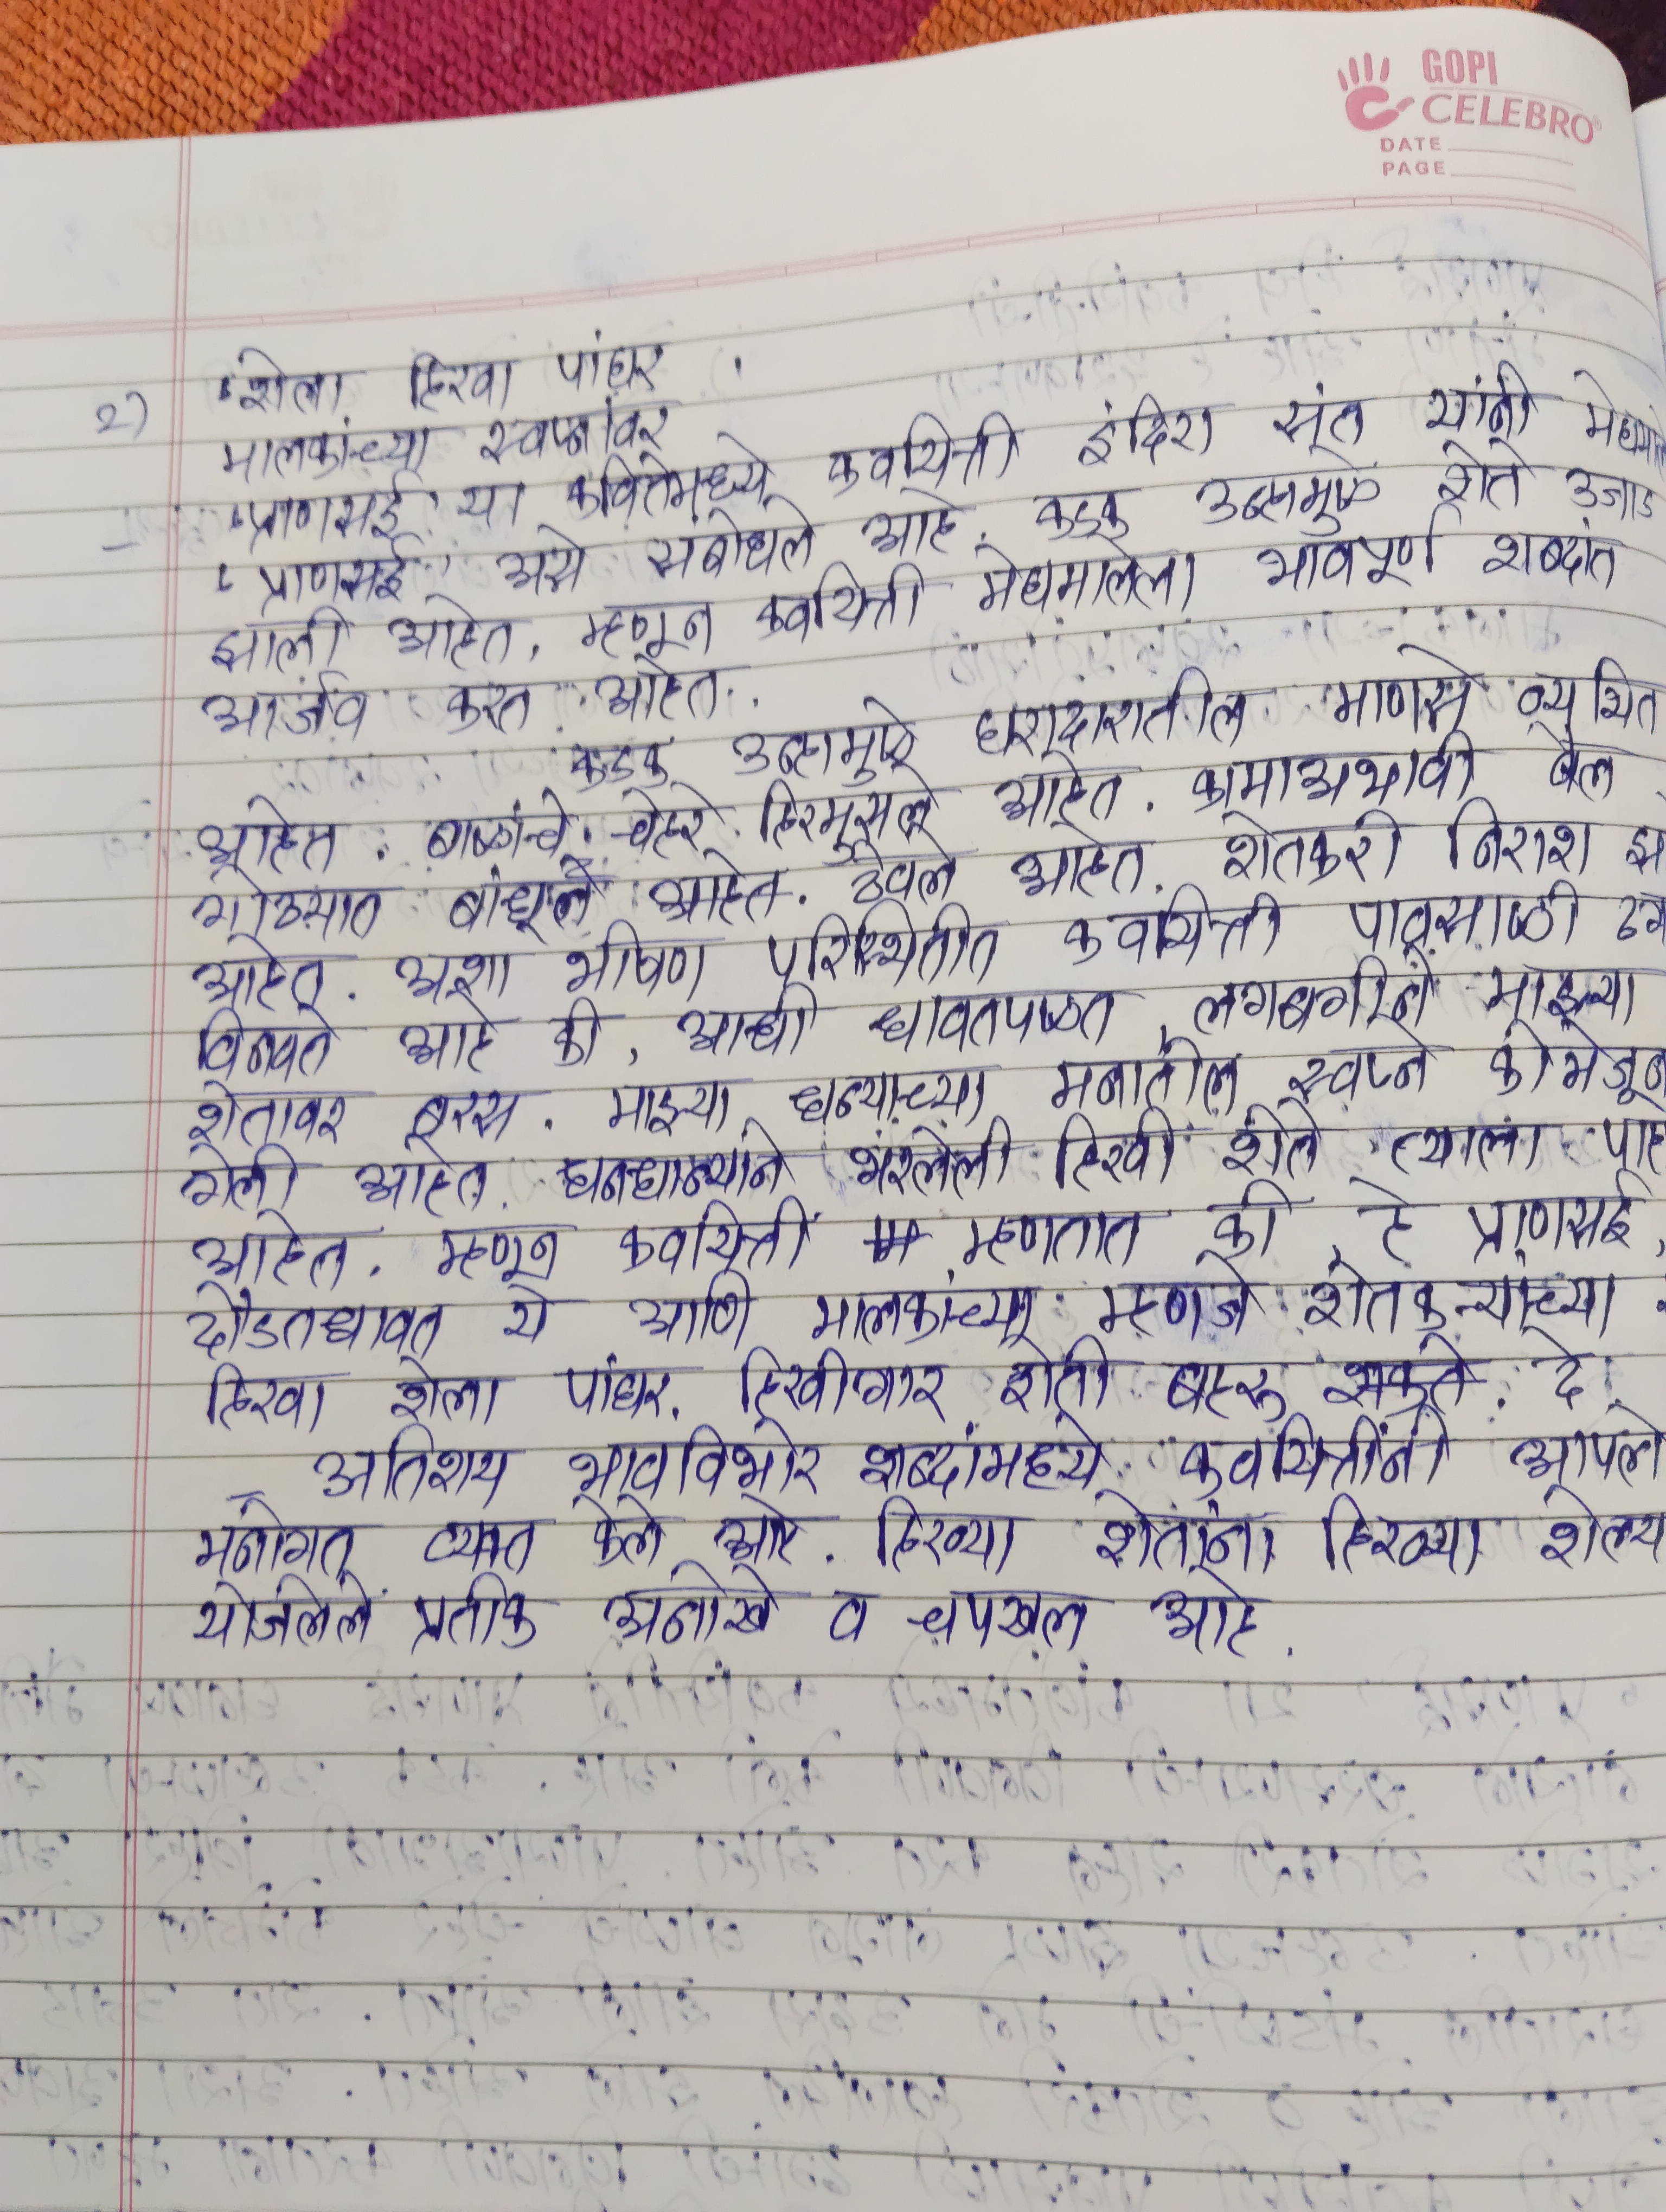 GOPI
CELEBRO
DATE
PAGE
२) "शेला हिरवा पांघर
मालकांच्या स्वप्नांवर
'प्राणसई' या कवितेमध्ये कवयित्री इंदिरा संत यांनी
'प्राणसई' असे संबोधले आहे. कडक उन्हामुळे शेते उजाड
झाली आहेत. म्हणून कवयित्री मेघमालेला भावपूर्ण शब्दांत
आर्जव करत आहेत.
कडक उन्हामुळे घरादारातील माणसे व्यथित
आहेत. बाळांचे चेहरे हिरमुसले आहेत. कामाअभावी बैल
गोठ्यात बांधले आहेत. ठेवले आहेत. शेतकरी निराश
आहेत. अशा भीषण परिस्थितीत कवयित्री पावसाळी
विनवते आहे की, आधी धावतपळत, लगबगीने माझ्या
शेतावर बरस. माझ्या धन्याच्या मनातील स्वप्ने कोमेजून
गेली आहेत. धनधान्याने भरलेली हिरवी शेते त्याला
आहेत. म्हणून कवयित्री म्हणतात की, हे प्राणसई,
दौडतधावत ये आणि मालकांच्या म्हणजे शेतकऱ्यांच्या
हिरवा शेला पांघर. हिरवीगार शेती बहरू शकते. दे.
अतिशय भावविभोर शब्दांमध्ये कवयित्रींनी आपले
मनोगत व्यक्त केले आहे. हिरव्या शेतांना हिरव्या
योजलेले प्रतीक अनोखे व चपखल आहे.